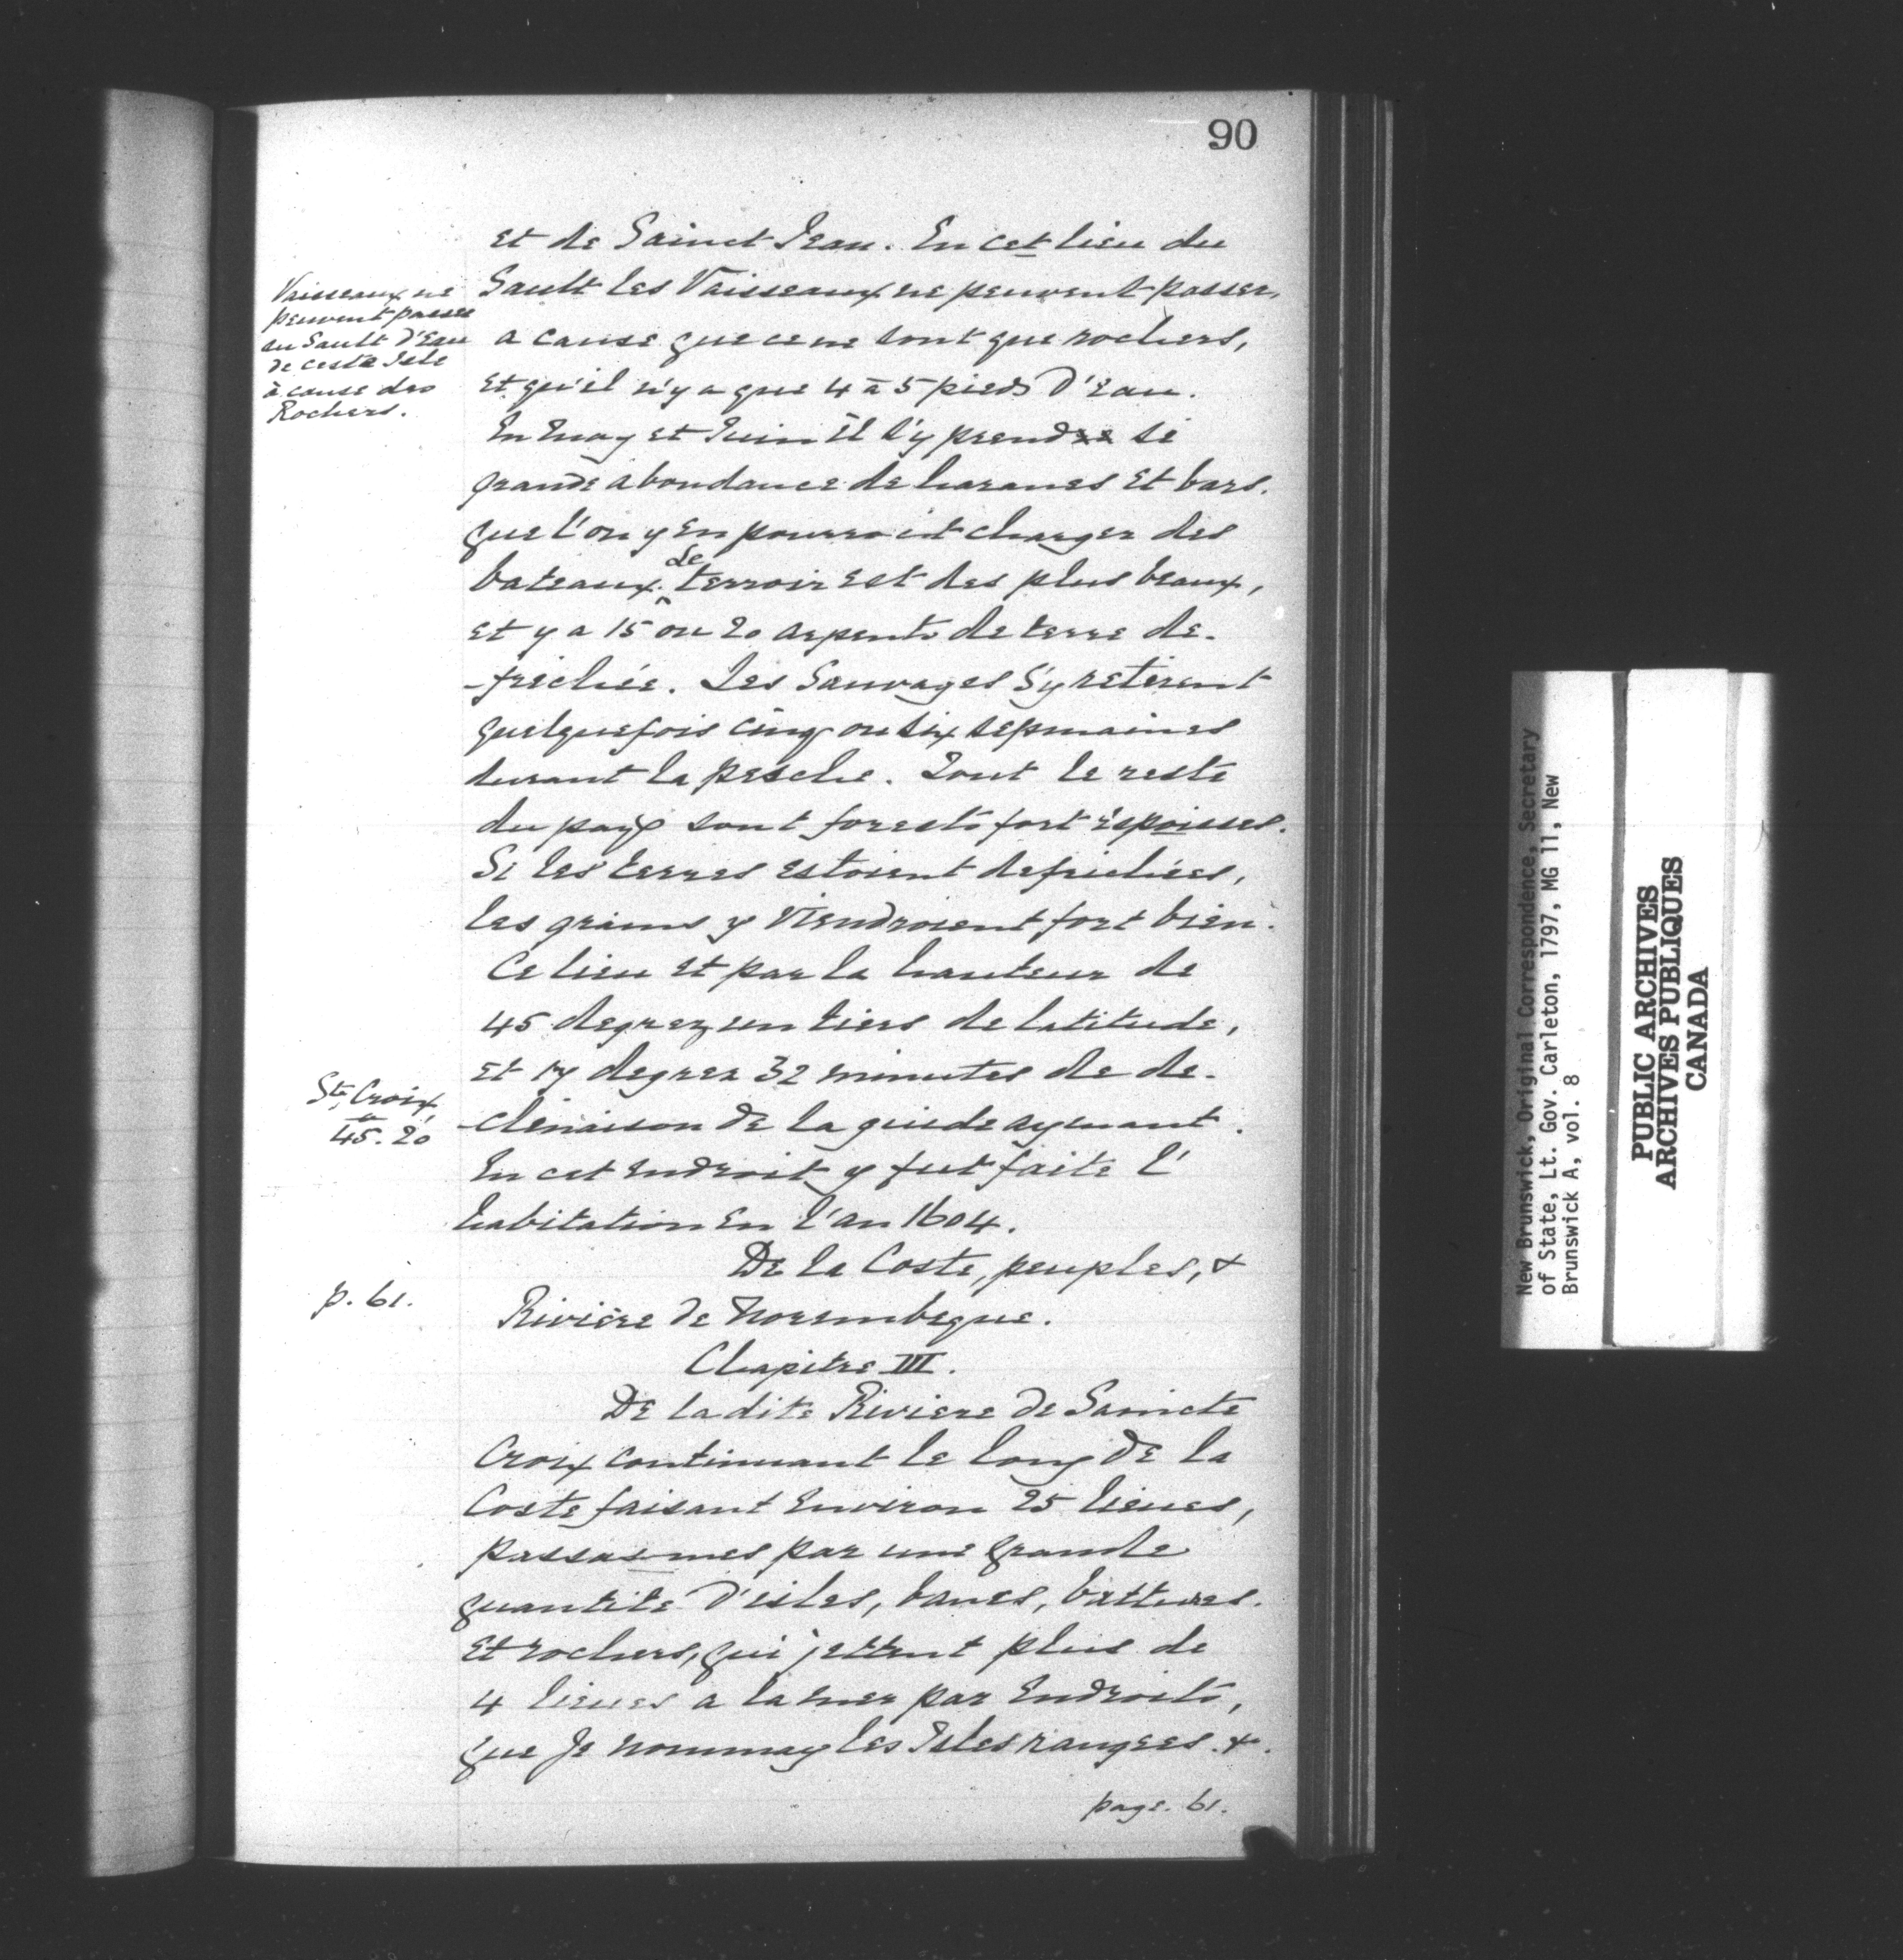 90
et de Sainct Jean. En cet lieu du
Sault les Vaisseaux ne peuvent passer,
a cause que ce ne sont que rochers,
et qu'il n'y a que 4 à 5 pieds d'Eau.
En May et Juin il s'y prend si
grande abondance de harancs et bars.
que l'on y en pourroit charger des
bateaux. Le terroir est des plus beaux,
et y a 15 ou 20 arpents de terre de-
-frichée. Les Sauvages s'y retirent
quelquefois cinq ou six sepmaines
durant la pesche. Tout le reste
du pays sont forests fort éspoisses.
Si les terres estoient defrichées,
les grains y Viendroient fort bien.
Ce lieu et par la hauteur de
45 degrez un tiers de latitude,
et 17 degrez 32 minutes de de-
-clinaison de la guide aymant.
En cet endroit y fut faite l'
habitation en l'an 1604.
De la Coste, peuples, &
Rivière de Norembegue.
Chapitre III.
De la dite Riviere de Saincte
Croix continuant le long de la
Coste faisant environ 25 lieues,
passasmes par une grande
quantite d'isles, bancs, battures.
et rochers, qui jettent plus de
4 lieues a la mer par Endroits,
que Je nommay les Isles rangees. &c.
page. 61.
Vaisseaux ne
peuvent passer
au Sault d'Eau
de ceste Isle
à cause des
Rochers.
Ste. Croix,
45. 20
p. 61.
New Brunswick, Original Correspondence, Secretary
of State, Lt. Gov. Carleton, 1797, MG 11, New
Brunswick A, vol. 8
PUBLIC ARCHIVES
ARCHIVES PUBLIQUES
CANADA